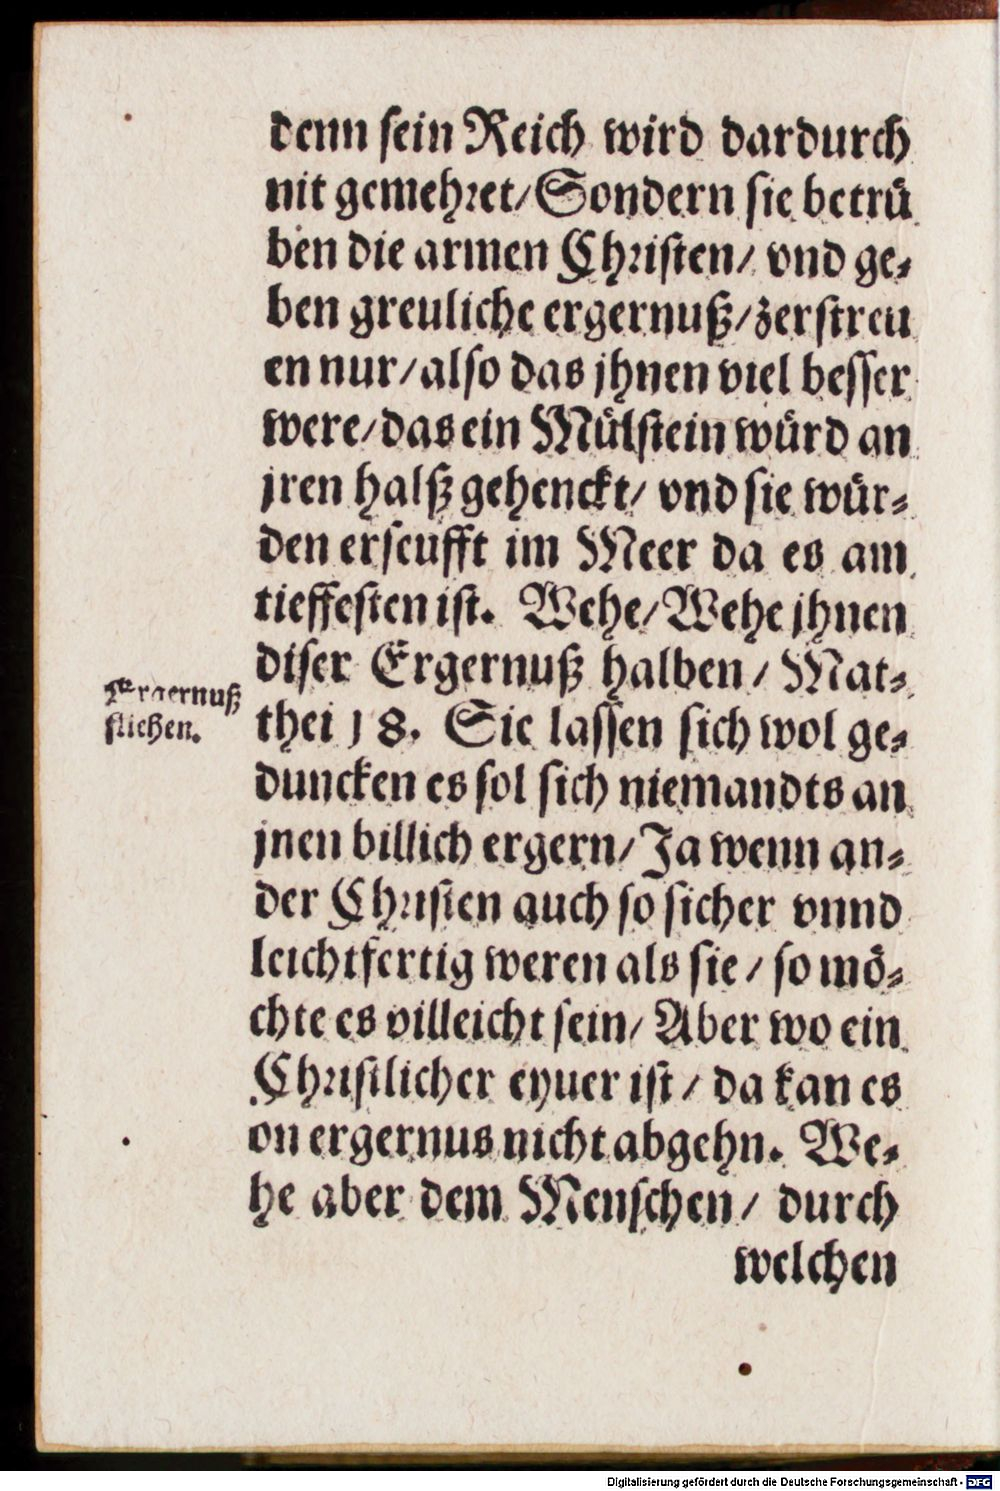 denn sein Reich wird dardurch
nit gemehret/ Sondern sie betrü
ben die armen Christen/ vnd ge-
ben greuliche ergernuß/ zerstreu
en nur/ also das jhnen viel besser
were/ das ein Mülstein würd an
jren halß gehenckt/ vnd sie wür-
den erseufft im Meer da es am
tieffesten ist. Wehe/ Wehe jhnen
diser Ergernuß halben/ Mat-
thei 18. Sie lassen sich wol ge-
duncken es sol sich niemandts an
jnen billich ergern/ Ja wenn an-
der Christen auch so sicher vnnd
leichtfertig weren als sie/ so mö-
chte es villeicht sein/ Aber wo ein
Christlicher eyuer ist/ da kan es
on ergernus nicht abgehn. We-
he aber dem Menschen/ durch
welchen
Ergernuß
fliehen.
Digitalisierung gefördert durch die Deutsche Forschungsgemeinschaft - DFG